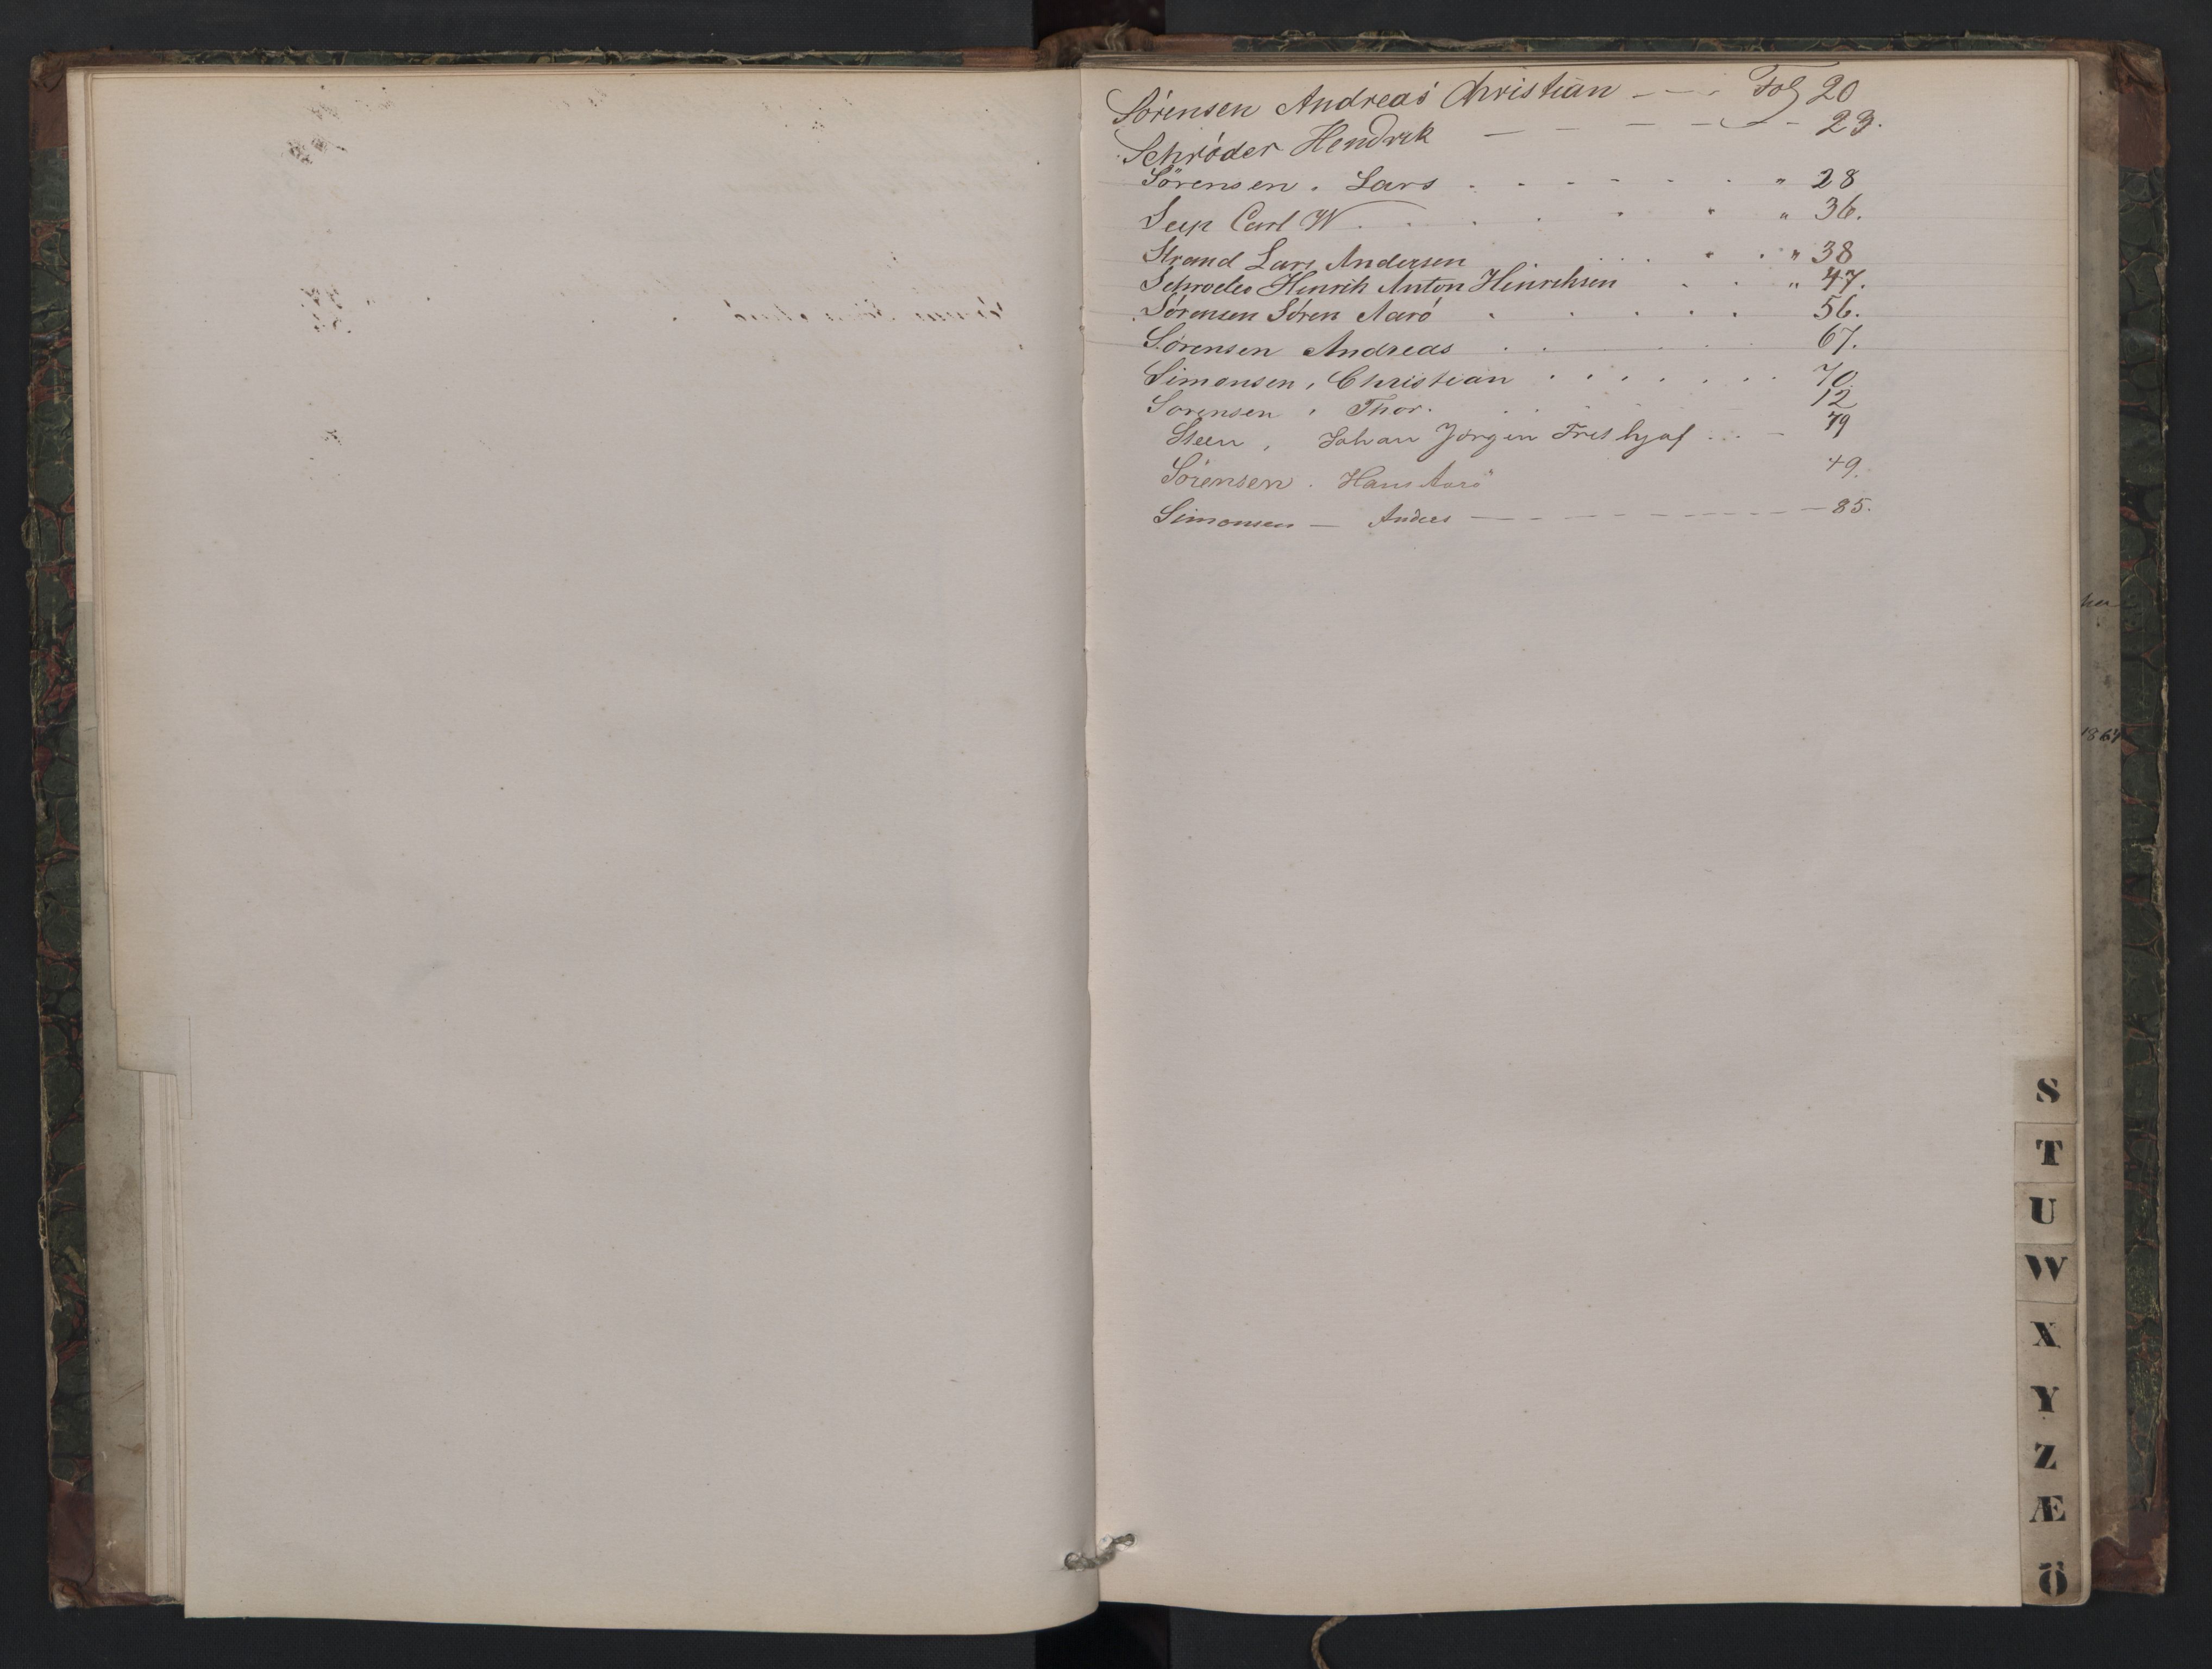 Sörensen Andreas Christian - - - Fol 20
Schröder Hendrik - - - - - 23.
Sörensen. Lars . . . . . . . " 28
Seip Carl W . . . . . " 36.
Strand Lars Andersen . . . . . " 38
Schroeder Henrik Anton Hinrichsen . . " 47.
Sörensen Sören Aarö . . . . . 56.
Sörensen Andreas . . . . . 67.
Simonsen, Christian . . . . . . . 70.
Sörensen, Thor. . . . . 12
Steen, Johan Jörgen Frithjof . . . - 79
Sörensen. Hans Aarö 49.
Simonsen — Anders — - - - - - - - - 85.
1867
S
T
U
W
X
Y
Z
Æ
Ö